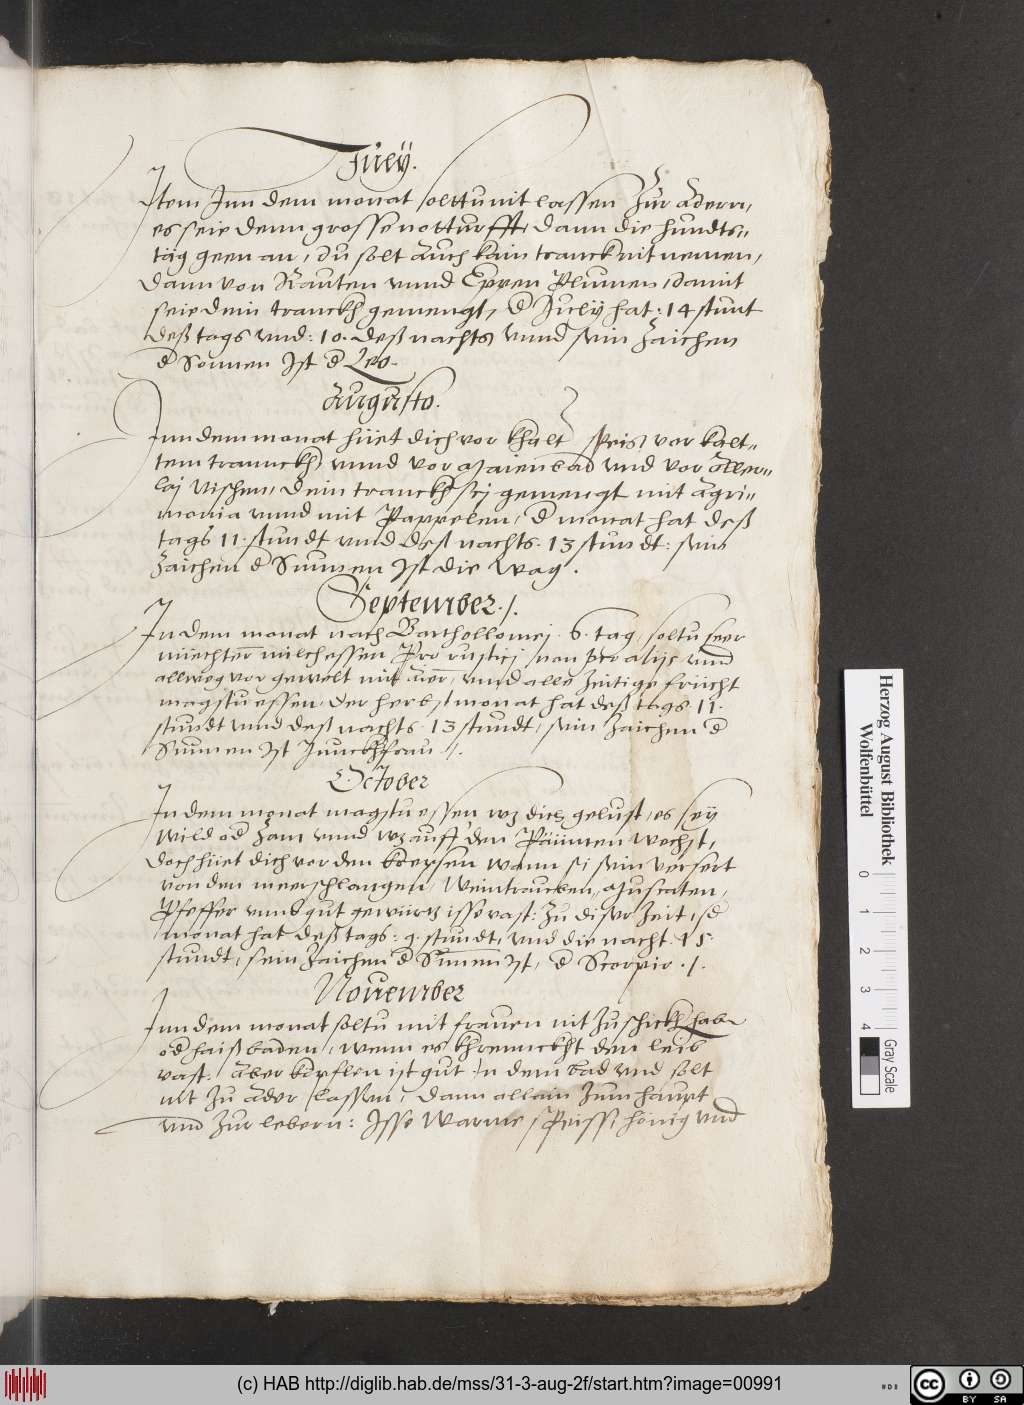 Jüely.
Item Inn dem monat solttu nit lassen Zur Adern,
es seie denn grosse notturfft, dann die hundts=
täg geen an, du solt Auch kain tranckh nit nemen,
dann von Rauten vnnd Eppen Plumen, damit
seie dein tranckh gemengt, d July hat: 14 stunt
deß tags vnd: 10. deß nachts vnnd sein Zaichen
d Sonnen Ist d Leo.
Augusto.
Inn dem monat hüet dich vor khalt speiß vor kalt=
tem trannckh, vnnd vor Maienbad vnd vor Aller=
laj Vischen, dein tranckh sej gemengt mit Agri=
monia vnnd mit Pappelen, d monat hat deß
tags 11. stundt vnnd deß nachts. 13 stundt: sein
Zaichen d Sunnen Ist die wag.
September ./.
In dem monat nach Barthollomej. 6. tag, soltu seer
milch essen Pro rusticj non pro alijs vnnd
allweg vor gewelt mit air, vnnd alle Zeitige früicht
magstu essen, der herbstmonat hat deß tags. 11.
stundt vnnd deß nachts 13 stundt, sein Zaichen d
Sunnen Ist Junckhfrau ./.
October
In dem monat magstu essen wz dich gelust, es seÿ
wild od Zam vnnd wz auff den Päümen wechst,
doch hüet dich vor den krepsen wann si sein versert
von den meerschlangen, Weintrauben, Muscaten,
Pfeffer vnnd gut gewürtz isse vast: Zu diser Zeit, d
monat hat deß tags: 9. stundt, vnd die nacht. 15
stundt, sein Zaichen d Sunnen Ist, d Scorpio ./.
Nouember
Inn dem monat soltu mit frauen nit Zuschickh hab
od haiß baden, wenn es khrennckht den leib
vast: Aber köpflen ist gut In dem bad vnd solt
nit Zu Ader lassen, dann allain Zum haupt
vnd Zur lebern: Isse Warme speiss, hönig vnd
Herzog August Bibliothek
Wolfenbüttel
0 1 2 3 4
Gray Scale
(c) HAB http://diglib.hab.de/mss/31-3-aug-2f/start.htm?image=00991
HAB
cc BY SA